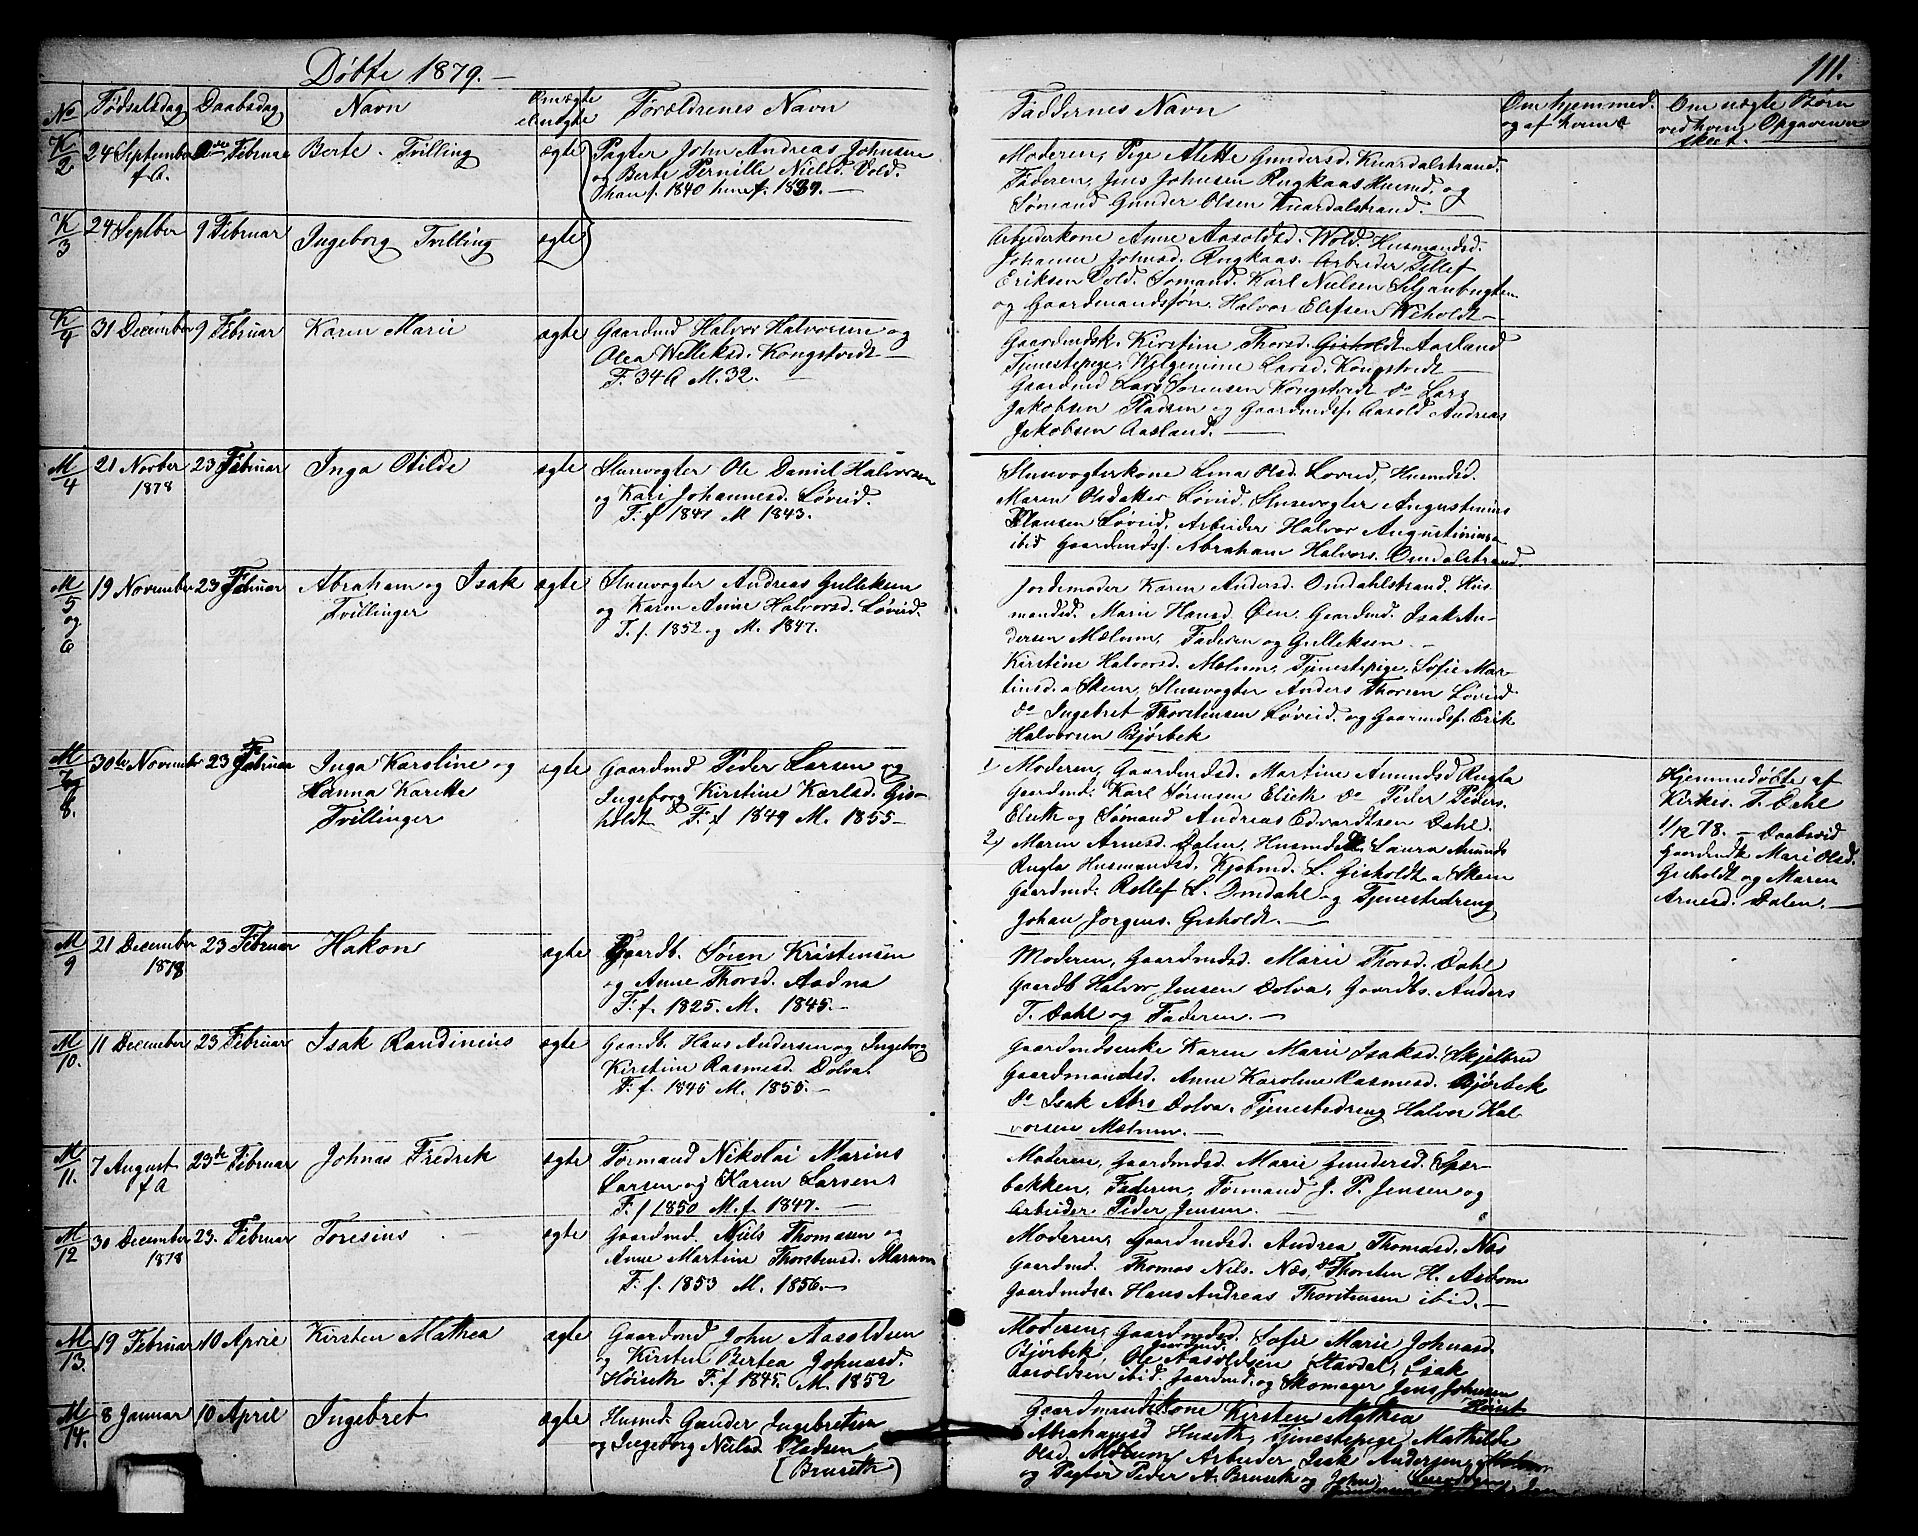 Døbte 1879.
111.
No Fødselsdag Daabsdag Navn Om ægte el. uægte Forældrenes Navn
Faddernes Navn Om hjemmed. og af hvem Om uægte Børn ved hvem Opgaven er skeet.
K/2 24 September f.A. 9de Februar Berte. Tvilling ægte
Pagter John Andreas Johnsen
og Berte Pernille Nielsd. Vold.
Han f. 1840 hun f. 1839.
Moderen, Pige Alette Gundersd. Knardalstrand.
Faderen, Jens Johnsen Rugkaas Husmd. og
Sømand Gunder Olsen Knardalstrand.
K/3 24 Septber 9 Februar Ingeborg Tvilling ægte
Arbejderkone Anne Aasoldsd. Wold. Husmandsd.
Johanne Johnsd. Rugkaas. Arbeider Tellef
Eriksen Vold. Sømand. Karl Nielsen
og Gaardmandssøn. Halvor Elefsen Wiholdt
K/4 31 December 9 Februar Karen Marie ægte
Gaardmd Halvor Halvorsen og
Olea Welleksd. Kongstvedt
F. 34 A M. 32.
Gaardmdsk. Kirstine Thorsd. Aasland
Tjenestepige, Wilgemine Larsd. Kongstvedt
Gaardmd Lars Sørensen Kongstvedt do Lars
Jakobsen Pladsen og Gaardmdsf. Aasold Andreas
Jakobsen Aasland.
M/4 21 Novber 1878 23 Februar Inga Otilde ægte
Slusevogter Ole Daniel Halvorsen
og Kari Johannesd. Løveid.
F. f 1841 M 1843.
Slusevogterkone Lina Olsd. Løveid, Husmdsd.
Maren Olsdatter Løveid, Slusevogter Augustinius
Hansen Løveid, Arbeider Halvor Augustiniusen
ibid Gaardmdsf. Abraham Halvors. Omdalstrand
M/5 og 6 19 November 23 Februar Abraham og Isak Tvillinger ægte
Slusevogter Andreas Gulleksen
og Karen Anne Halvorsd. Løveid.
F. f. 1852 og M. 1847.
Jordemoder Karen Andersd. Omdahlstrand. Hus
mandsd. Marie Hansd. Øen. Gaardmd. Isak An-
dersen Mælum, Faderen og Gulleksen
Kirstine Halvorsd. Mælum, Tjenestepige, Sofie Mar-
tinsd. a Skien, Slusevogter Anders Thorsen Løveid
do Ingebret Thorstensen Løveid. og Gaarmdsf. Erik
Halvorsen Bjørbek
M/7 og 8. 30te November 23 Februar Inga Karoline og Hanna Karette Tvillinger ægte
Gaardmd Peder Larsen og
Ingeborg Kirstine Karlsd. Gis-
holdt F. f 1849 M. 1855
1) Moderen, Gaardmdsd. Martine Amundsd Rugla
Gaardmd. Karl Sørensen Elseth do Peder Peders.
Elseth og Sømand Andreas Edvardtsen Dahl.
2) Maren Arnesd. Dalen, Husmdsd. Laura Amunds
Rugla Husmandsd. Kjøbmd. L. Gisholdt a Skien
Gaardmd. Rollef L. Omdahl og Tjenestedreng
Johan Jørgens. Gisholdt.
Hjemmedøbte af
Kirkes. T. Dahl
1/12 78. – Daabsvid
Gaardmdk Mari Olsd.
Gisholdt og Maren
Arnesd. Dalen.
M/9 21 December 1878 23 Februar Hakon ægte
Gaardb. Søren Kristensen
og Anne Thorsd. Aadna
F. f. 1825. M. 1845.
Moderen, Gaardmdsd. Marie Thorsd. Dahl
Gaardb Halvor Jensen Dolva, Gaardbs. Anders
T. Dahl og Faderen.
M/10. 11 December 23 Februar Isak Randinius ægte
Gaardb. Hans Andersen og Ingeborg
Kirstine Rasmusd. Dolva.
F. f. 1845 M. 1855.
Gaardmdsenke Karen Marie Isaksd. Skjelbred
Gaardmandsd. Anne Karoline Rasmusd. Bjørbek
do Isak Abr. Dolva. Tjenestedreng Halvor Hal
vorsen Mælum.
M/11. 7 August f A 23de Februar Johnas Fredrik ægte
Formand Nikolai Marius
Larsen og Karen Larsens
F. f 1850 M. f. 1847.
Moderen, Gaardmdsd. Marie Gundersd.
bakken, Faderen, Formand J. P. Jensen og
Arbeider Peder Jensen.
M/12 30 December 1878 23. Februar Toresius ægte
Gaardmd. Niels Thomasen og
Anne Martine Thorstensd.
F. f. 1853 M. 1856.
Moderen, Gaardmdsd. Andrea Thomasd. Næs
Gaardmd. Thomas Nils. Næs, do Thorsten H. Asbom
Gaardmdss. Hans Andreas Thorstensen ibid.
M/13. 19 Februar 10 April Kirsten Mathea ægte
Gaardmd John Aasoldsen
og Kirsten Bertea Johnasd.
Høiseth F. f 1845. M. 1852
Moderen, Gaardmdsd. Sofie Marie Johnasd.
Bjørbek, Gaardmd. Ole Aasoldsen Stavdal, Isak
Aasoldsen ibid, Gaardmd. og Skomager Jens Johnsen
Høiset
M/14. 8 Januar 10 April Ingebret ægte
Husmd. Gunder Ingebretsen
og Ingeborg Nielsd Pladsen
(Bruseth)
Gaardmandskone Kirsten Mathea
Abrahamsd Huseth, Tjenestepige Mathilde
Olsd. Mælum, Arbeider Isak Andersen
og Pagter Peder A. Bruseth og John